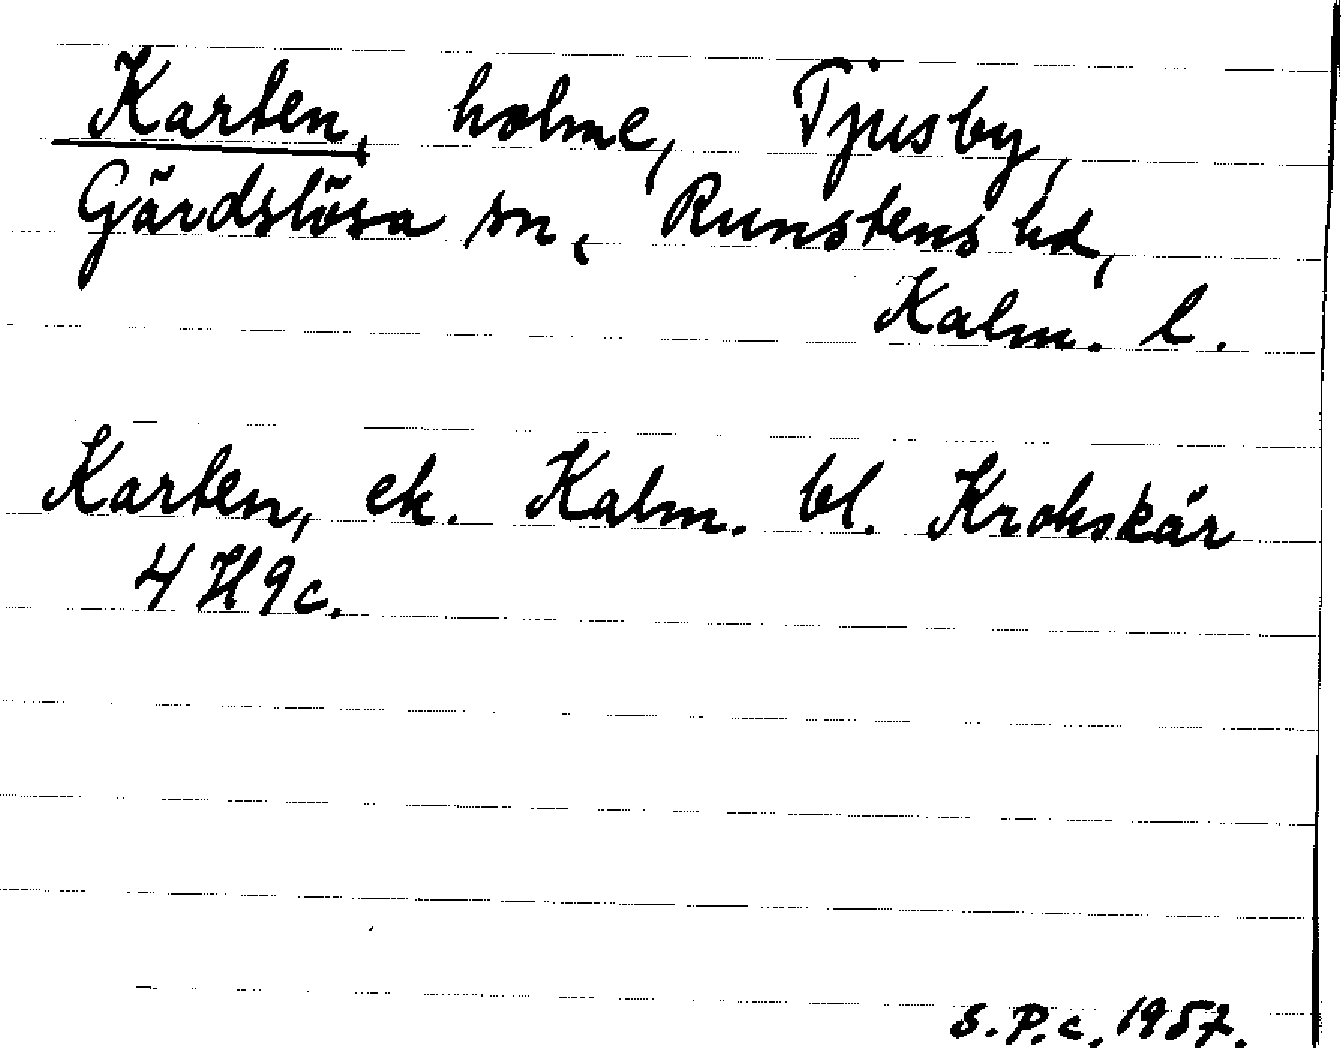 Karten, holme, Tjusby,
Gärdslösa sn, Runstens hd,
Kalm. l.
Karten, ek. Kalm. bl. Krokskär
4 H 9c.
S.P.c. 1957.